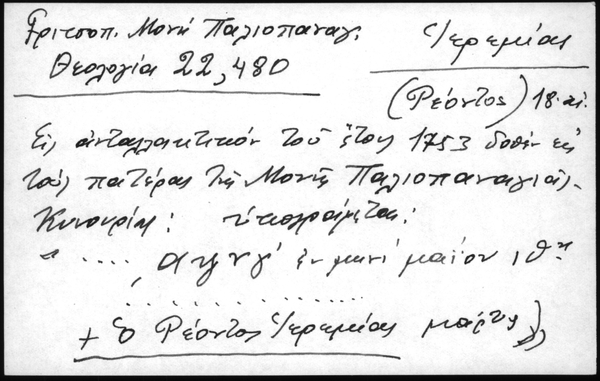 Γριτσοπ. Μονή Παλιοπαναγ.
Θεολογία 22, 480
Ἱερεμίας
(Ρέοντος) 18. αἰ.
Εἰς ἀνταλλακτικόν τοῦ ἔτους 1753 δοθέν εἰς
τούς πατέρας τῆς Μονῆς Παλιοπαναγιᾶς
Κυνουρίας: ὑπογράφεται:
" .... , αψνγ' ἐν μηνί μαΐου ιθῃ
..................
+ ὁ Ρέοντος Ἱερεμίας μάρτυς »